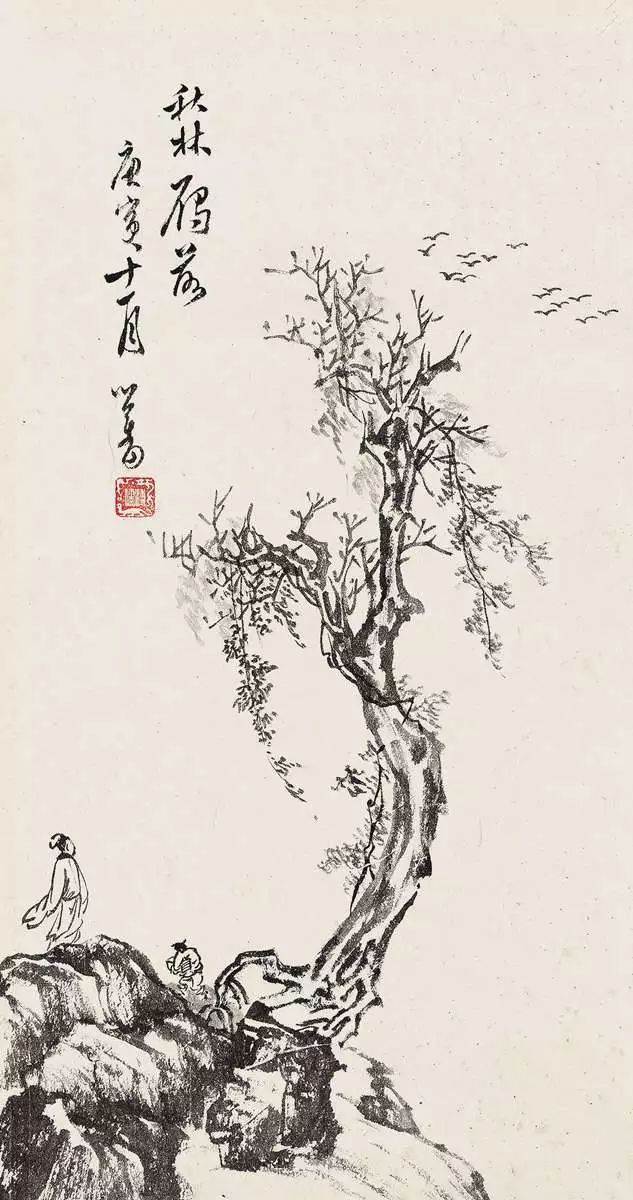 秋林鴈落
庚寅十一月
心畬